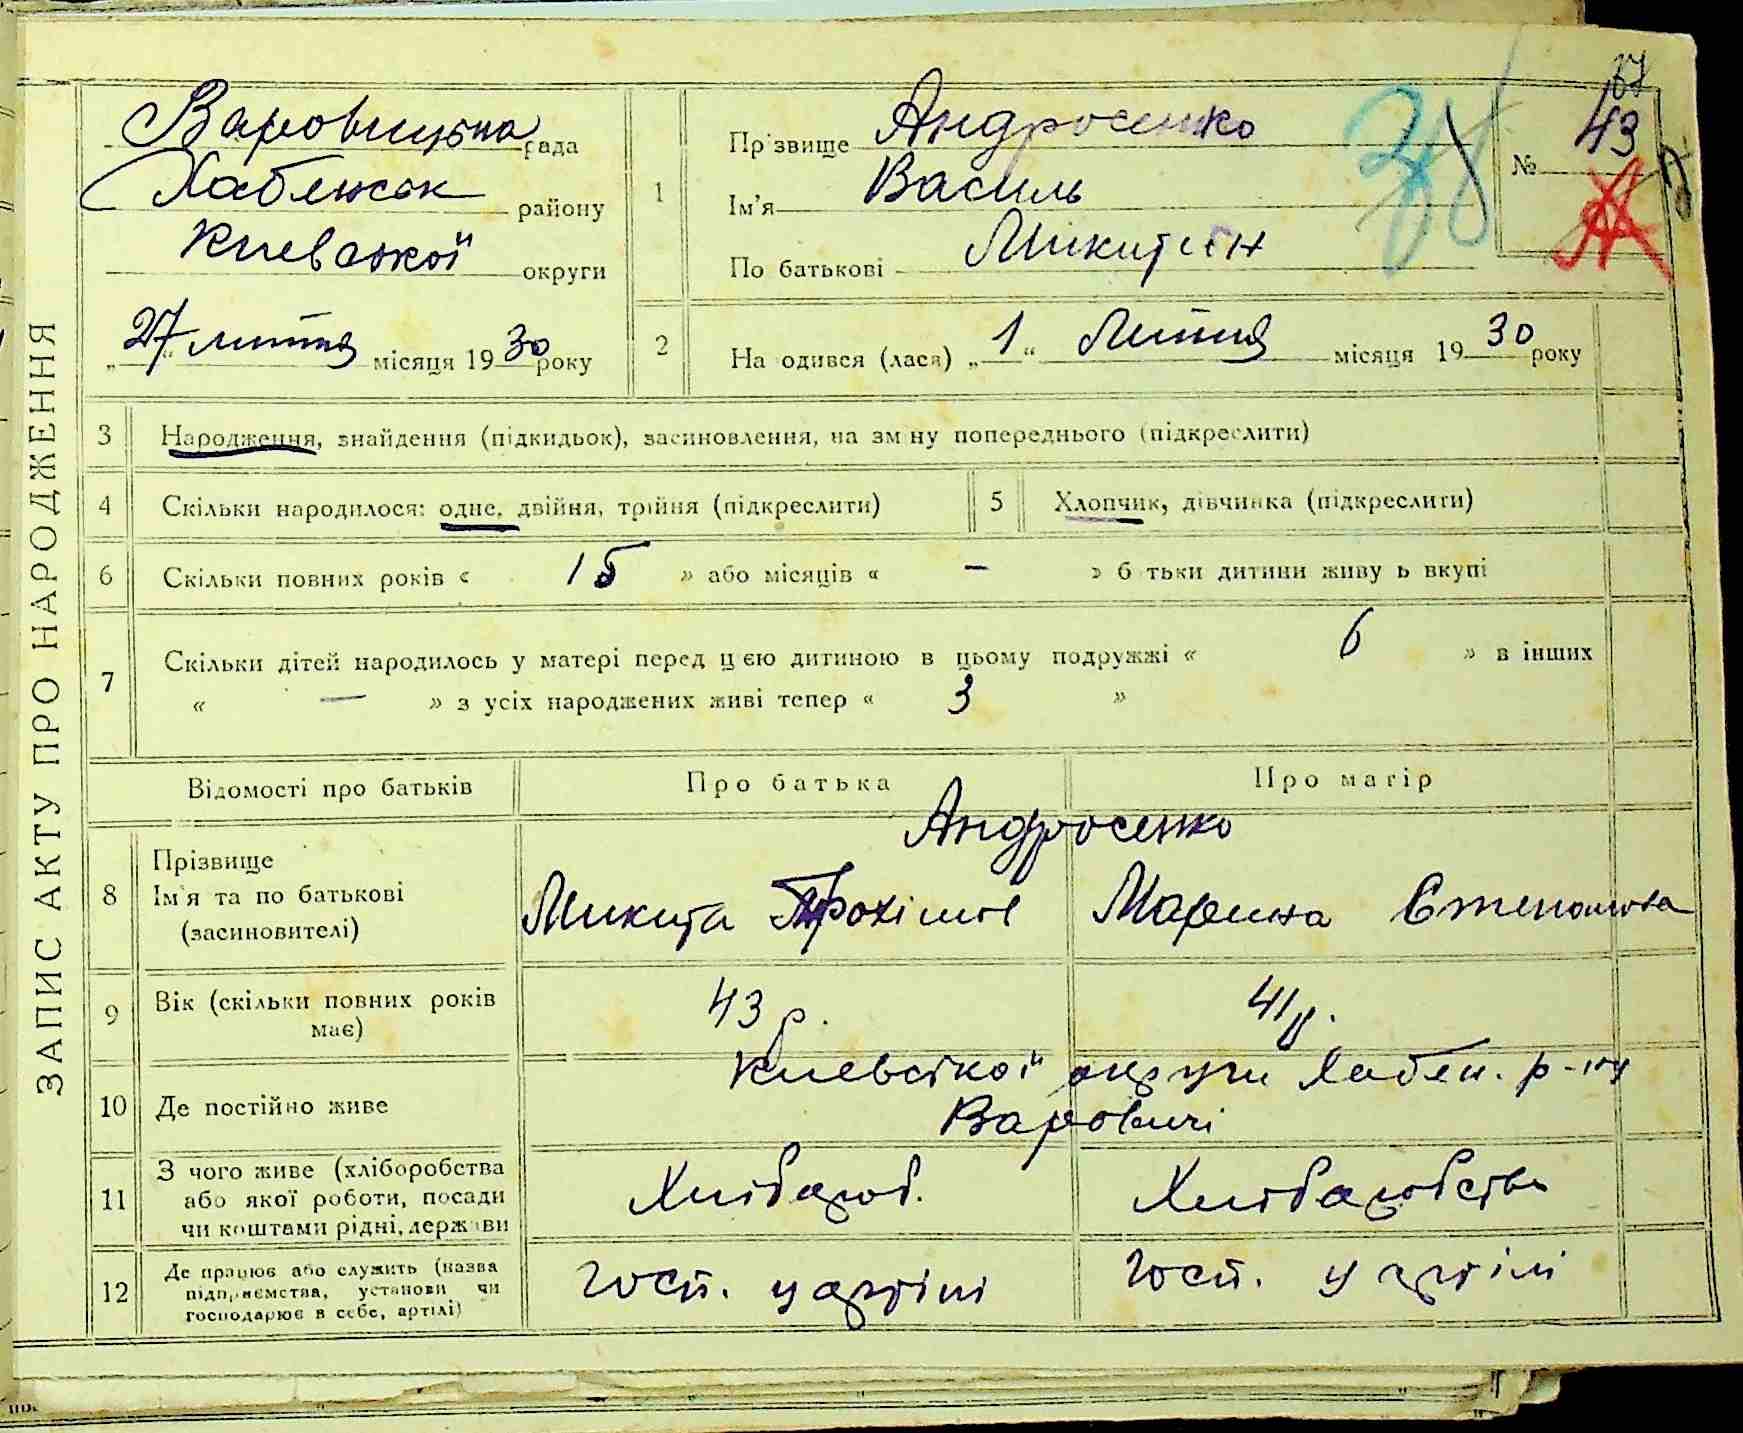 ЗАПИС АКТУ ПРО НАРОДЖЕННЯ
Варовицька рада
Хабенськ району
Киевської округи
„27“ липня місяця 1930 року
1 Прізвище Андросенко
Ім'я Василь
По батькові Микитин
№ 43
67
2 Народився (лася) „1“ Липня місяця 1930 року
3 Народження, знайдення (підкидьок), засиновлення, на зміну попереднього (підкреслити)
4 Скільки народилося: одне, двійня, трійня (підкреслити)
5 Хлопчик, дівчинка (підкреслити)
6 Скільки повних років « 15 » або місяців « - » батьки дитини живуть вкупі
7 Скільки дітей народилось у матері перед цією дитиною в цьому подружжі « 6 » в інших
« — » з усіх народжених живі тепер « 3 »
Відомості про батьків Про батька Про матір
8 Прізвище
Ім'я та по батькові
(засиновителі)
Андросенко
Микита Трохімов Марина
9 Вік (скільки повних років
має)
43 р. 41 р.
10 Де постійно живе
Киевської округи Хабен. р-ну
Варовичі
11 З чого живе (хліборобства
або якої роботи, посади
чи коштами рідні, держави
Хлібороб. Хліборобство
12 Де працює або служить (назва
підприємства, установи чи
господарює в себе, артілі)
госп. у артілі госп. у артілі